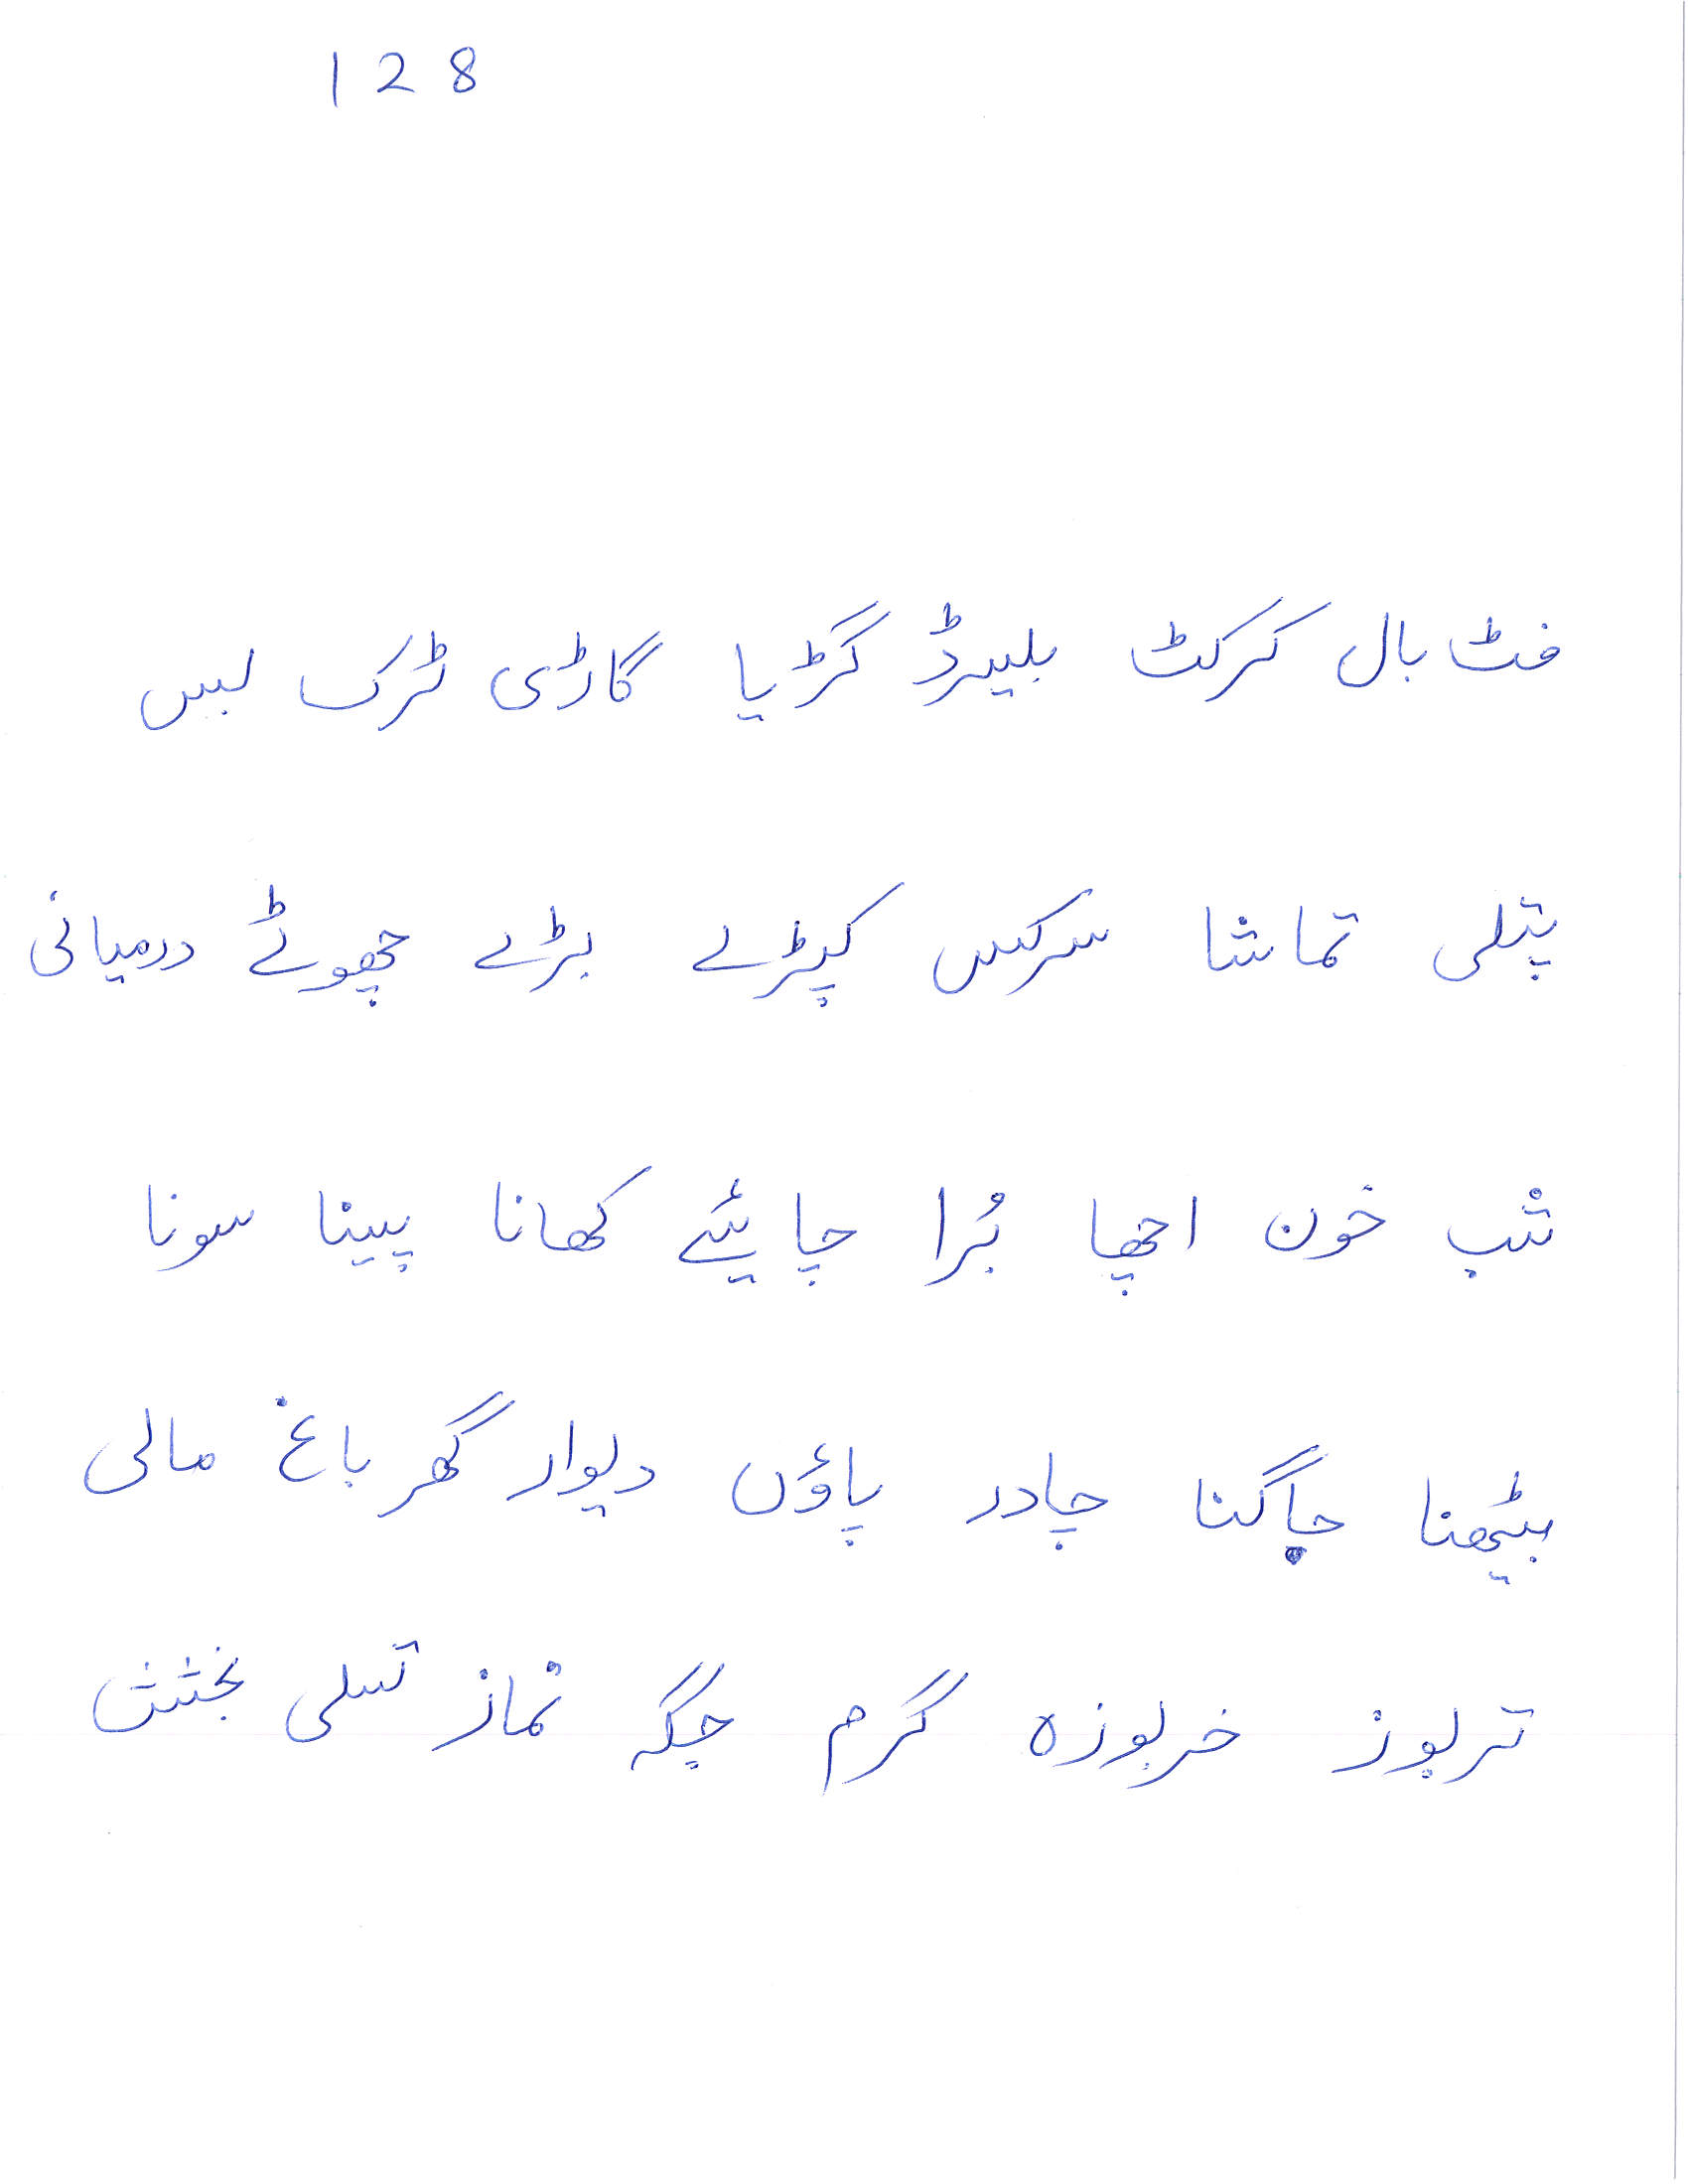 128
فٹ بال کرکٹ بلیرڈ گڑیا گاڑی ٹرک بس
پتلی تماشا سرکس کپڑے بڑے چھوٹے درمیانی
شب خون اچھا بُرا چایئے کھانا پینا سونا
بیٹھنا جاگنا چادر پاؤں دیوار گھر باغ مالی
تربوز خربوزہ گرم جگہ نماز تسلی بخشش